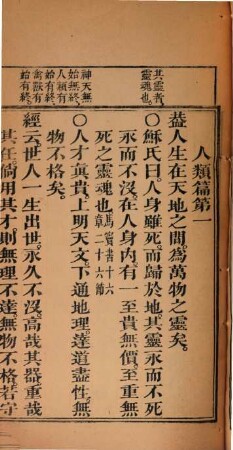 人類篇第一
蓋人生在天地之間爲萬物之靈矣
其靈者
靈魂也
○蘇氏曰人身雖死而歸於地其靈永而不死
永而不沒在人身內有一至貴無價至重無
死之靈魂也
馬竇書十六
章二十六節
○人才眞貴上明天文下通地理達道盡性無
物不格矣
神天無
始無終
人類有
始無終
禽獸有
始有終
經云世人一生出世永久不沒高哉其器重哉
其任倘用其才則無理不達無物不格若守